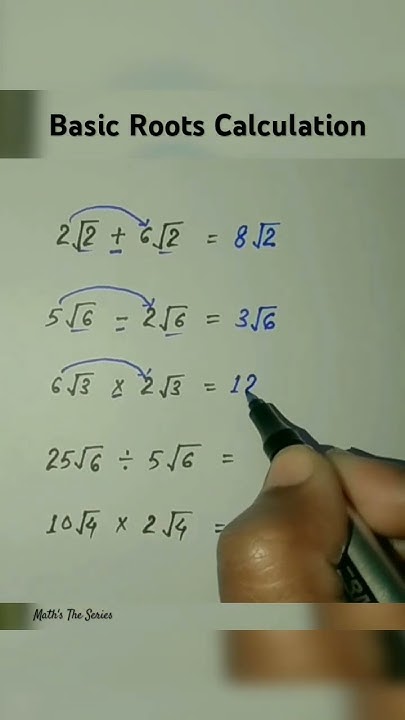 Basic Roots Calculation
2√2 + 6√2 = 8√2
5√6 - 2√6 = 3√6
6√3 x 2√3 = 12
25√6 ÷ 5√6 =
10√4 x 2√4 =
Math's The Series